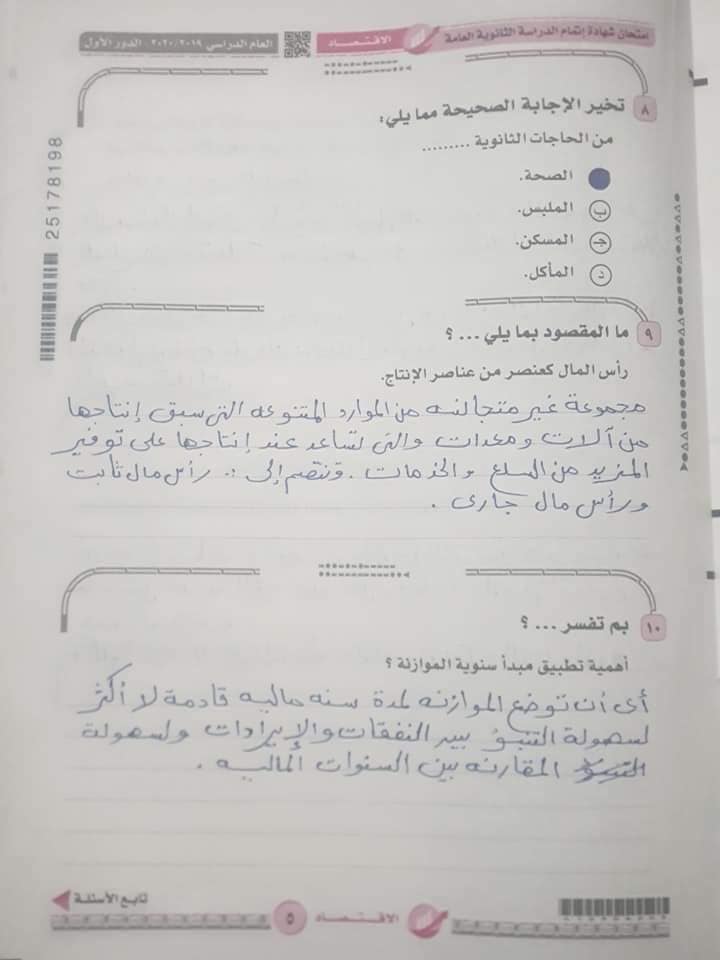 امتحان شهادة إتمام الدراسة الثانوية العامة
الاقتصاد
العام الدراسي ٢٠١٩/٢٠٢٠ - الدور الأول
25178198
٨ تخير الإجابة الصحيحة مما يلي:
من الحاجات الثانوية .........
الصحة.
ب الملبس.
جـ المسكن.
د المأكل.
٩ ما المقصود بما يلي ... ؟
رأس المال كعنصر من عناصر الإنتاج.
مجموعة غير متجانسه من الموارد المتنوعه التى سبق إنتاجها
من آلات ومعدات والتى تساعد عند إنتاجها على توفير
المزيد من السلع والخدمات . وتنقسم إلى :- رأس مال ثابت
ورأس مال جارى .
١٠ بم تفسر ... ؟
أهمية تطبيق مبدأ سنوية الموازنة ؟
أى أن توضع الموازنه لمدة سنه ماليه قادمة لا أكثر
لسهولة التنبؤ بين النفقات والإيرادات ولسهولة
المقارنه بين السنوات الماليه .
تابع الأسئلة
٥
الاقتصاد